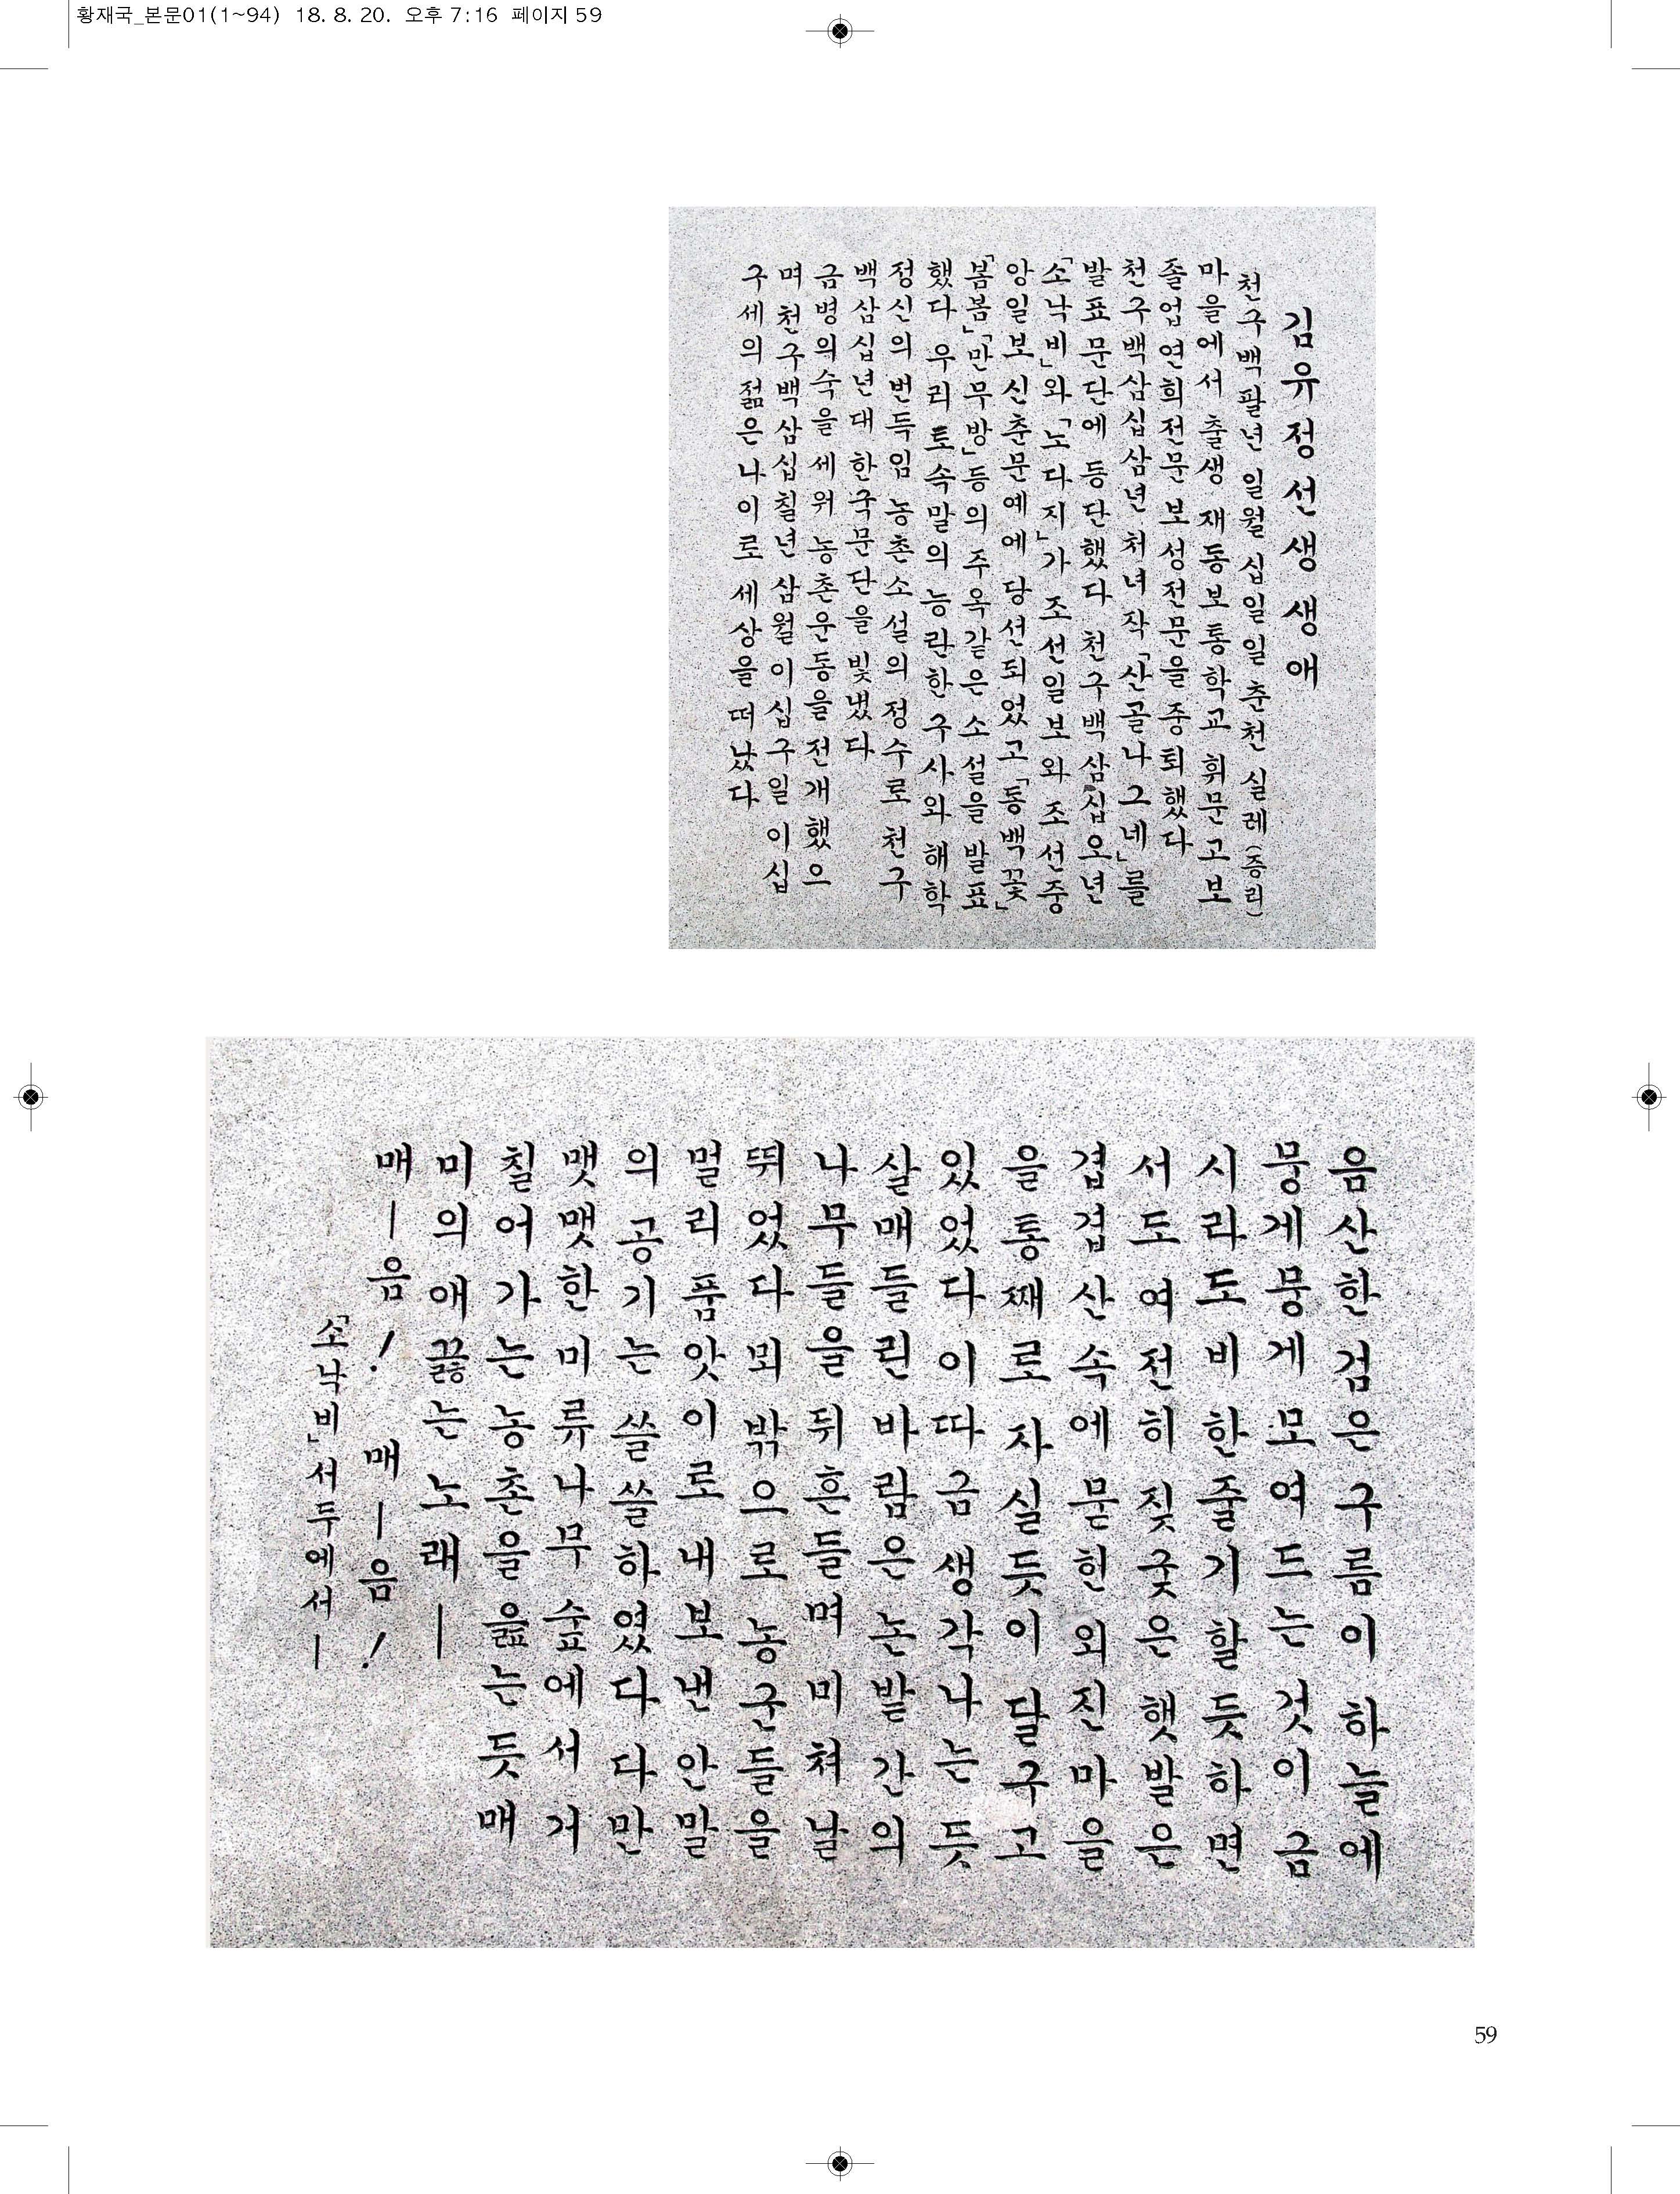 황재국_본문01(1~94) 18. 8. 20. 오후 7:16 페이지 59
김유정선생 생애
천구백팔년 일월 십일일 춘천 실레(증리)
마을에서 출생 재동보통학교 휘문고보
졸업 연희전문 보성전문을 중퇴했다
천구백삼십삼년 처녀작「산골나그네」를
발표 문단에 등단했다 천구백삼십오년
「소낙비」와「노다지」가 조선일보와 조선중
앙일보 신춘문예에 당선되었고「동백꽃」
「봄봄」「만무방」등의 주옥같은 소설을 발표
했다 우리 토속말의 능란한 구사와 해학
정신의 번득임 농촌소설의 정수로 천구
백삼십년대 한국문단을 빛냈다
금병의숙을 세워 농촌운동을 전개했으
며 천구백삼십칠년 삼월 이십구일 이십
구세의 젊은 나이로 세상을 떠났다
음산한 검은 구름이 하늘에
뭉게뭉게 모여드는 것이 금
시라도 비 한줄기 할듯하면
서도 여전히 짖궂은 햇발은
겹겹 산속에 묻힌 외진 마을
을 통째로 자실듯이 달구고
있었다 이따금 생각나는 듯
살매들린 바람은 논밭간의
나무들을 뒤흔들며 미쳐 날
뛰었다 뫼 밖으로 농군들을
멀리 품앗이로 내보낸 안말
의 공기는 쓸쓸하였다 다만
맷맷한 미류나무숲에서 거
칠어가는 농촌을 읊는듯 매
미의 애끓는 노래ㅣ
매ㅣ음! 매ㅣ음!
「소낙비」서두에서ㅣ
59